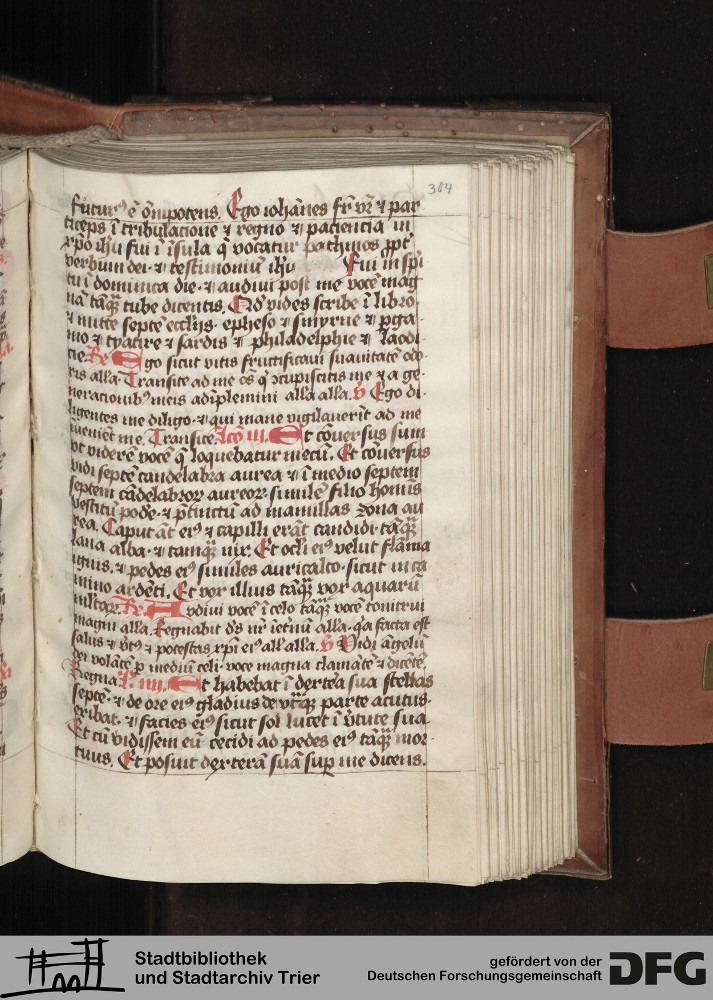 304
futur⁹ ē om̄ipotens. Ego ioh̄anes fr̄ vr̄ ⁊ par
ticeps ī tribulacione ⁊ regno ⁊ paciencia in
xp̄o ih̄u fui ī īsula q̄ vocatur pathmos ꝓpt̄
verbum dei ⁊ testimoniū ih̄u Fui in sp̄i
tu ī dominica die ⁊ audiui post me vocē mag
nā tāqꝫ tube dicentis. Qd̄ vides scribe ī libro
⁊ mitte septē eccl̄ijs epheso ⁊ smyrne ⁊ ꝑga
mo ⁊ tyatire ⁊ sardis ⁊ philadelphie ⁊ laodi
cie. Re Ego sicut vitis fructificaui suauitatē odo
ris alla. Transite ad me om̄s q̄ ꝯcupiscitis me ⁊ a ge
neracionibꝰ meis adīplemini alla alla. V Ego di
ligentes me diligo ⁊ qui mane vigilauerīt ad me
īueniēt me. Transite. Lc̄o iii. Et cōuersus sum
vt viderē vocē q̄ loquebatur mecū. Et cōuersus
vidi septē candelabra aurea ⁊ ī medio septem
septem cādelabroꝝ aureoꝝ simile filio hominis
vestitū podē ⁊ p̄cinctū ad mamillas zona au
rea. Caput āt ei⁹ ⁊ capilli erāt candidi tāqꝫ
lana alba ⁊ tamqꝫ nix. Et oc̄li ei⁹ velut flāma
ignis, ⁊ pedes ei⁹ similes auricalco sicut in ca
mino ardēti. Et vox illius tāqꝫ vox aquarū
mltaꝝ. Re Audiui vocē ī celo tāqꝫ vocē tonitrui
magni alla. Regnabit d̄s nr̄ īet̄nū alla. q̄a facta est
salus ⁊ v̄t⁹ ⁊ potestas xp̄i ei⁹ alla alla. V Vidi āgelū
dei volātē ꝑ mediū celi voce magna clamātē ⁊ dicētē,
Regna. L. iiii. Et habebat ī dextea sua stellas
septē ⁊ de ore ei⁹ gladius de vtqꝫ parte acutus
exibat ⁊ facies ei⁹ sicut sol lucet ī v̄tute sua
Et cū vidissem eū cecidi ad pedes ei⁹ tāqꝫ mor
tuus. Et posuit dexterā suā suꝑ me dicens.
Stadtbibliothek
und Stadtarchiv Trier
gefördert von der
Deutschen Forschungsgemeinschaft
DFG